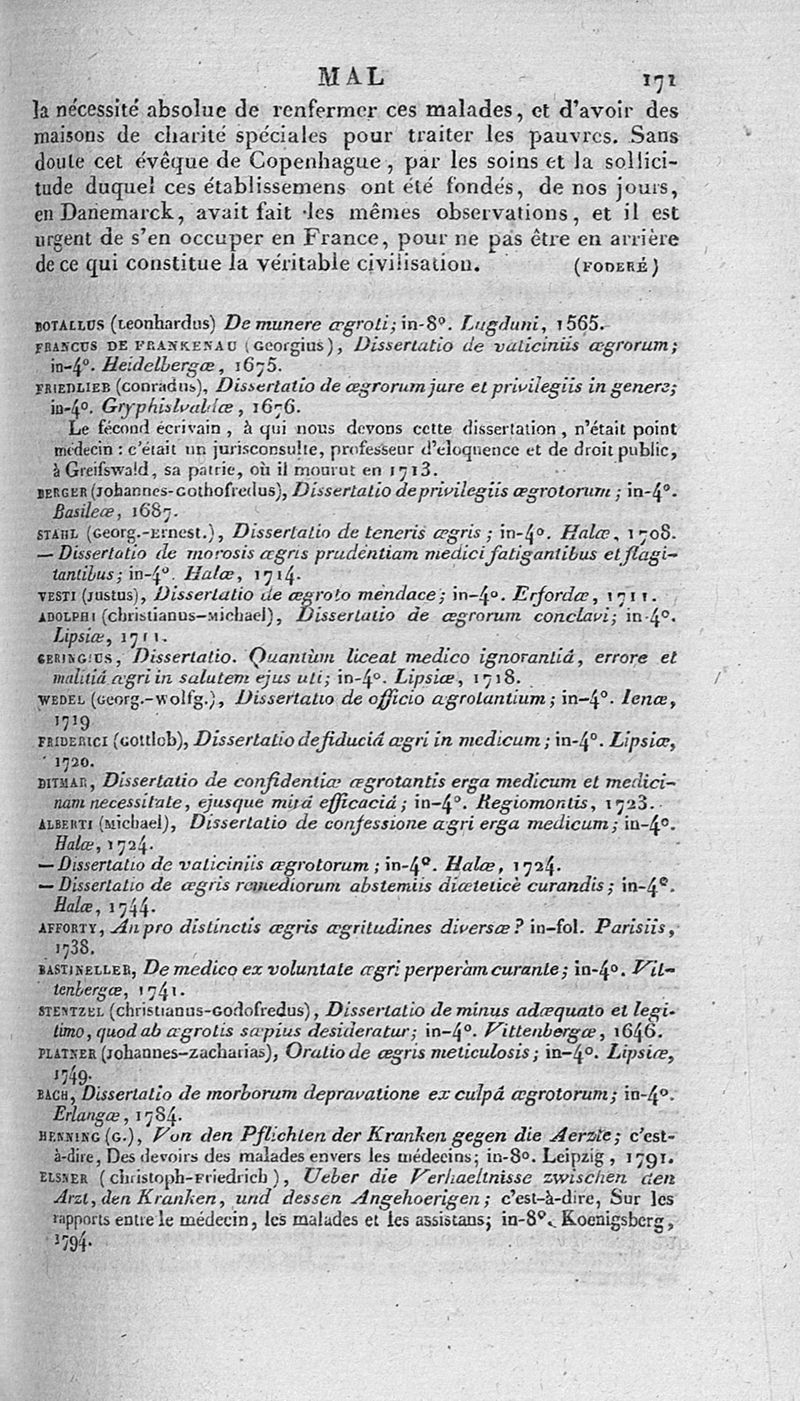 MAL 171
la nécessité absolue de renfermer ces malades, et d'avoir des
maisons de charité spéciales pour traiter les pauvres. Sans
doute cet évêque de Copenhague, par les soins et la sollici-
tude duquel ces établissemens ont été fondés, de nos jours,
en Danemarck, avait fait les mêmes observations, et il est
urgent de s'en occuper en France, pour ne pas être en arrière
de ce qui constitue la véritable civilisation. (FODERÉ)
BOTALLUS (Leonhardus) De munere ægroti; in-8°. Lugduni, 1565.
FRANCUS DE FRANKENAU (Georgius), Dissertatio de vaticiniis ægrorum;
in-4°. Heidelbergæ, 1675.
FRIEDLIEB (Conradus), Dissertatio de ægrorum jure et privilegiis in genere;
in-4°. Gryphisvaldæ, 1676.
Le fécond écrivain, à qui nous devons cette dissertation, n'était point
médecin : c'était un jurisconsulte, professeur d'éloquence et de droit public,
à Greifswald, sa patrie, où il mourut en 1713.
BERGER (Johannes-Gothofredus), Dissertatio de privilegiis ægrotorum; in-4°.
Basileæ, 1687.
STAHL (Georg.-Ernest.), Dissertatio de teneris ægris; in-4°. Halæ, 1708.
— Dissertatio de morosis ægris prudentiam medici fatigantibus et flagi-
tantibus; in-4°. Halæ, 1714.
VESTI (Justus), Dissertatio de ægroto mendace; in-4°. Erfordæ, 1711.
ADOLPHI (Christianus-Michael), Dissertatio de ægrorum conclavi; in-4°.
Lipsiæ, 1711.
GERINGIUS, Dissertatio. Quantùm liceat medico ignorantiâ, errore et
malitiâ ægri in salutem ejus uti; in-4°. Lipsiæ, 1718.
WEDEL (Georg.-Wolfg.), Dissertatio de officio ægrotantium; in-4°. Ienæ,
1719
FRIDERICI (Gottlob), Dissertatio de fiduciâ ægri in medicum; in-4°. Lipsiæ,
1720.
DITMAR, Dissertatio de confidentiæ ægrotantis erga medicum et medici-
nam necessitate, ejusque mirâ efficaciâ; in-4°. Regiomontis, 1723.
ALBERTI (Michael), Dissertatio de confessione ægri erga medicum; in-4°.
Halæ, 1724.
— Dissertatio de vaticiniis ægrotorum; in-4°. Halæ, 1724.
— Dissertatio de ægris remediorum abstemiis diæteticè curandis; in-4°.
Halæ, 1744.
AFFORTY, An pro distinctis ægris ægritudines diversæ? in-fol. Parisiis,
1738.
BASTINELLER, De medico ex voluntate ægri perperàm curante; in-4°. Vit-
tenbergæ, 1741.
STENTZEL (Christianus-Godofredus), Dissertatio de minus adæquato et legi-
timo, quod ab ægrotis sæpius desideratur; in-4°. Vittenbergæ, 1646.
PLATNER (Johannes-Zacharias), Oratio de ægris meticulosis; in-4°. Lipsiæ,
1749.
BACH, Dissertatio de morborum depravatione ex culpâ ægrotorum; in-4°.
Erlangæ, 1784.
HENNING (G.), Von den Pflichten der Kranken gegen die Aerzte; c'est-
à-dire, Des devoirs des malades envers les médecins; in-8°. Leipzig, 1791.
ELSNER (Christoph-Friedrich), Ueber die Verhaeltnisse zwischen den
Arzt, den Kranken, und dessen Angehoerigen; c'est-à-dire, Sur les
rapports entre le médecin, les malades et les assistans; in-8°. Koenigsberg,
1794.